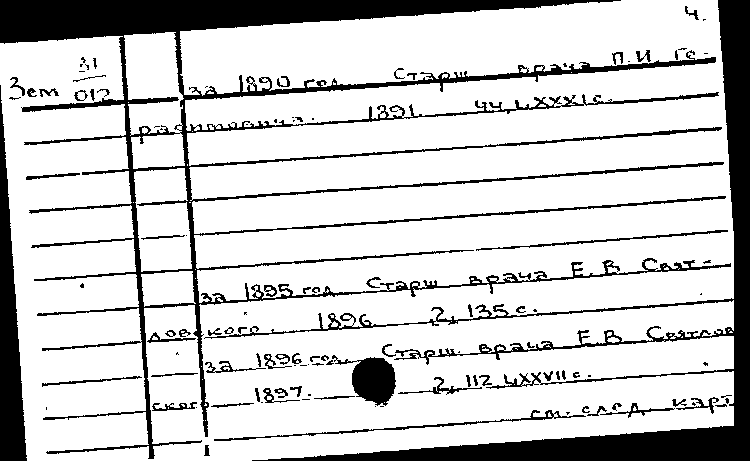 4.
Зем 31/012
за 1890 год. Старш врача П.И. Ге-
1891. 44, LXXXI с.
за 1895 год Старш врача Е.В Свят-
ловского. 1896 2, 135 с.
за 1896 год. Старш. врача Е.В Святлов
ского 1897. 2, 112 LXXVII с.
см. след. карт